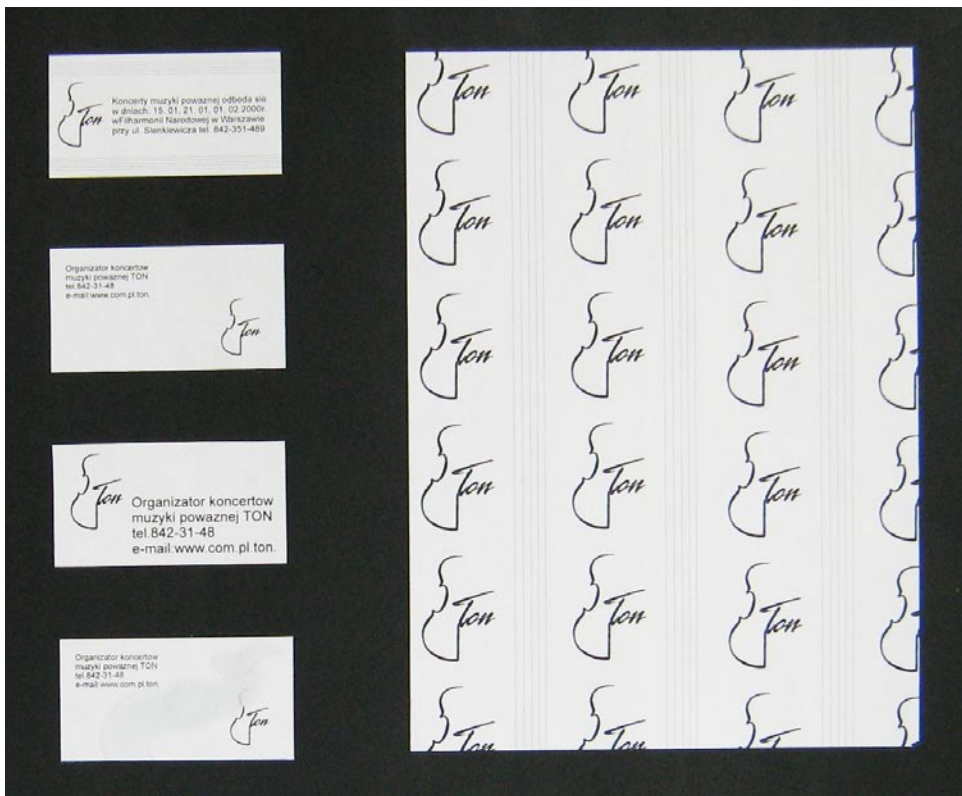 Ton
Koncerty muzyki powaznej odbeda sie
w dniach: 15. 01, 21. 01, 01. 02.2000r.
wFilharmonii Narodowej w Warszawie
przy ul. Sienkiewicza tel. 842-351-489
Organizator koncertow
muzyki powaznej TON
tel.842-31-48
e-mail:www.com.pl.ton.
Ton
Ton
Organizator koncertow
muzyki powaznej TON
tel.842-31-48
e-mail:www.com.pl.ton.
Organizator koncertow
muzyki powaznej TON
tel.842-31-48
e-mail:www.com.pl.ton.
Ton
Ton Ton Ton
Ton Ton Ton
Ton Ton Ton
Ton Ton Ton
Ton Ton Ton
Ton Ton Ton